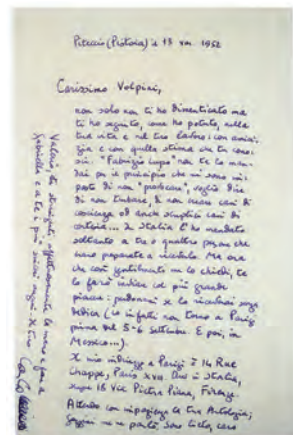 Piteccio (Pistoia) il 13 VIII. 1952
Carissimo Volpini,
non solo non ti ho dimenticato ma
ti ho seguito, come ho potuto, nella
tua vita e nel tuo lavoro: con amici-
zia e con quella stima che tu cono-
sci. "Fabrizio Lupo" non te lo man-
dai per il principio che mi sono im-
posto di non "
di non turbare, di non creare casi di
coscienza od anche semplici casi di
cortesia... In Italia l'ho mandato
soltanto a tre o quattro persone che
erano preparate a riceverlo. Ma ora
che così gentilmente me lo chiedi, te
lo farò inviare col più grande
piacere: perdonami se lo riceverai senza
dedica (io infatti non torno a Parigi
prima del 5-6 settembre. E poi, in
Messico...).
Il mio indirizzo a Parigi è 14 Rue
Chappe, Paris XVIII. Qui in Italia,
18 Via Pietra Piana, Firenze.
Attendo con impazienza la tua Antologia;
Valerio, ti stringo affettuosamente la mano e faccio a
Gabriella e a te i più vivi auguri. tuo
Carlo